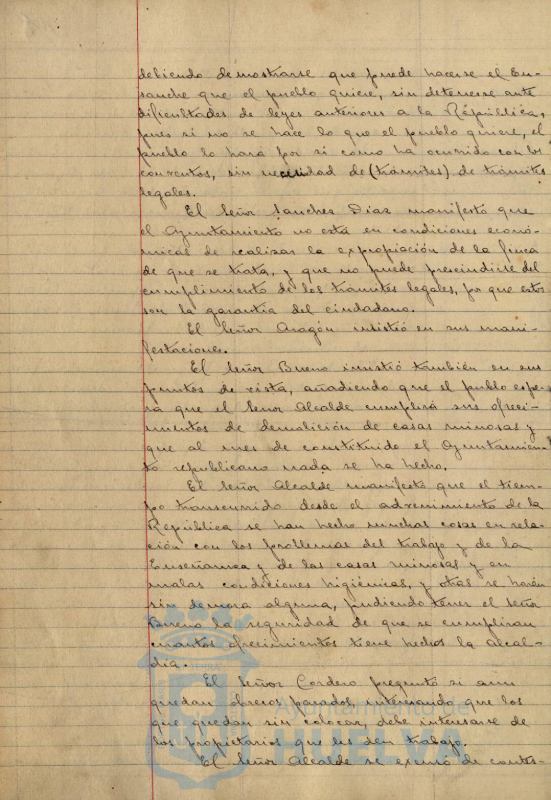 debiendo demostrarse que puede hacerse el En-
sanche que el pueblo quiere, sin detenerse ante
dificultades de leyes anteriores a la República,
pues si no se hace lo que el pueblo quiere, el
pueblo lo hará por si como ha ocurrido con los
conventos, sin necesidad de (trámites) de trámites
legales.
El Señor Sanchez Diaz manifestó que
el Ayuntamiento no está en condiciones econó-
micas de realizar la expropiación de la finca
de que se trata, y que no puede prescindirse del
cumplimiento de los trámites legales, por que estos
son la garantia del ciudadano.
El Señor Aragón insistió en sus mani-
festaciones.
El Señor Bueno insistió también en sus
puntos de vista, añadiendo que el pueblo espe-
ra que el Señor Alcalde cumplirá sus ofreci-
mientos de demolición de casas ruinosas y
que al mes de constituido el Ayuntamien-
to republicano nada se ha hecho.
El Señor Alcalde manifestó que el tiem-
po transcurrido desde el advenimiento de la
República se han hecho muchas cosas en rela-
ción con los problemas del trabajo y de la
Enseñanza y de las casas ruinosas y en
malas condiciones higiénicas, y otras se harán
sin demora alguna, pudiendo tener el señor
Bueno la seguridad de que se cumplirán
cuantos ofrecimientos tiene hechos la Alcal-
dia.
El Señor Cordero preguntó si aun
quedan obreros parados, interesando que los
que quedan sin colocar, debe interesarse de
los propietarios que les den trabajo.
El Señor Alcalde se excusó de contes-
Ayuntamiento de
HUELVA